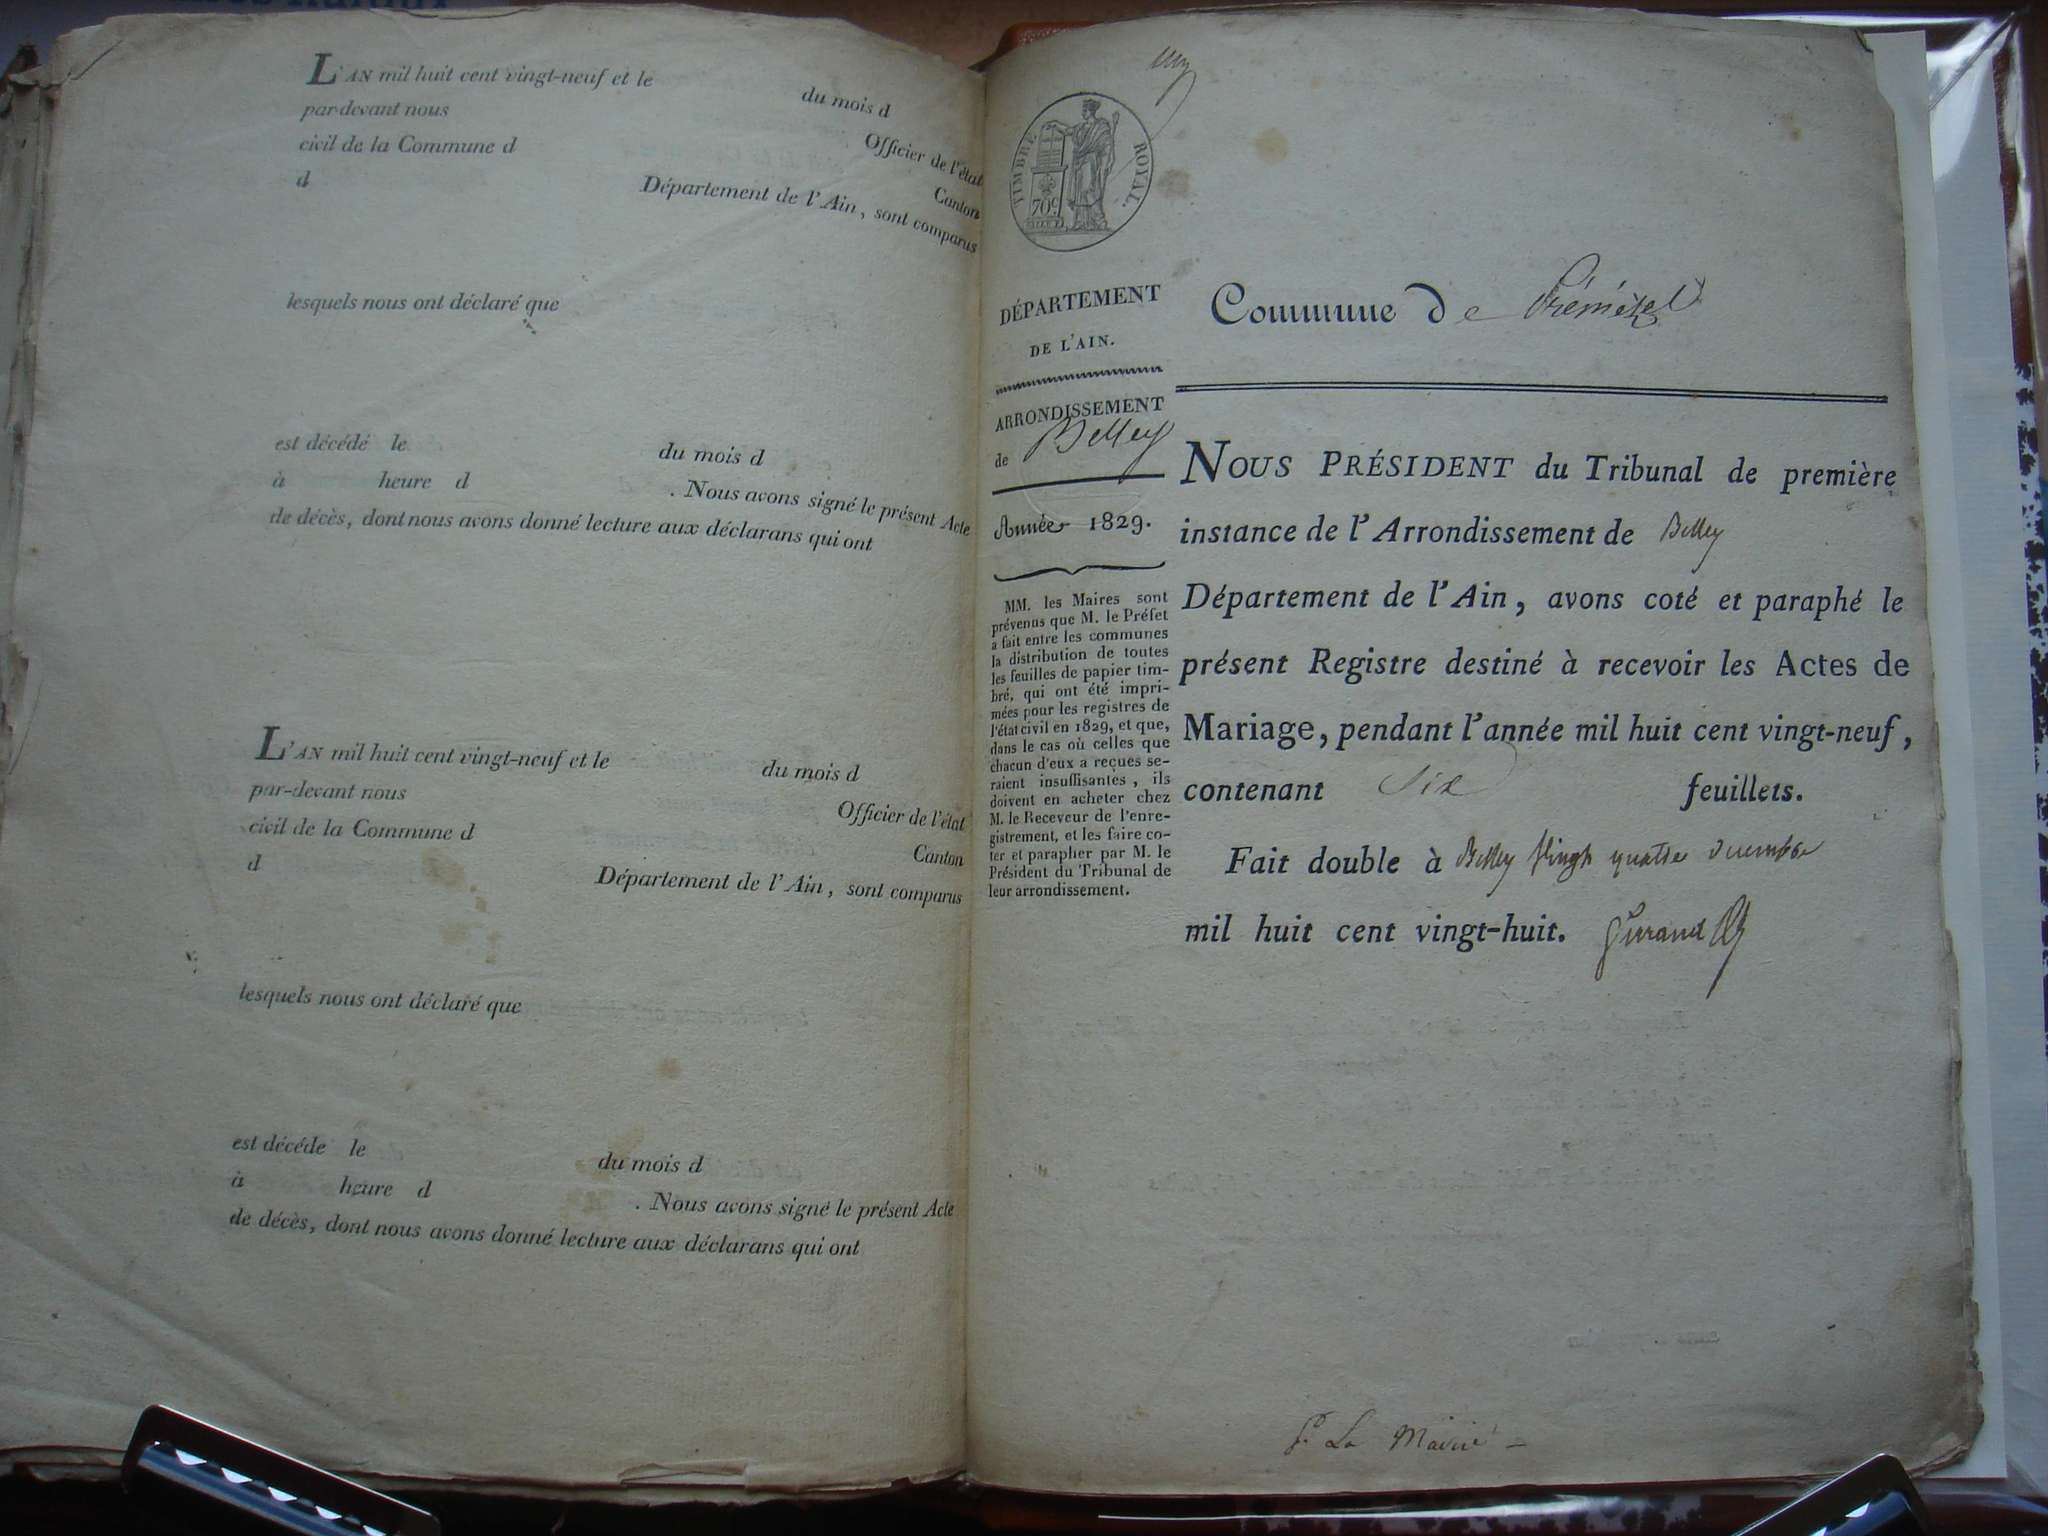 L'AN mil huit cent vingt-neuf et le du mois d
par-devant nous Officier de l'état
civil de la Commune d Canton
d Département de l'Ain, sont comparus
lesquels nous ont déclaré que
est décédé le du mois d
à heure d . Nous avons signé le présent Acte
de décès, dont nous avons donné lecture aux déclarans qui ont
L'AN mil huit cent vingt-neuf et le du mois d
par-devant nous Officier de l'état
civil de la Commune d Canton
d Département de l'Ain, sont comparus
lesquels nous ont déclaré que
est décéde le du mois d
à heure d . Nous avons signé le présent Acte
de décès, dont nous avons donné lecture aux déclarans qui ont
TIMBRE ROYAL.
70c
DÉPARTEMENT
DE L'AIN.
ARRONDISSEMENT
de Belley
Année 1829.
MM. les Maires sont
prévenus que M. le Préfet
a fait entre les communes
la distribution de toutes
les feuilles de papier tim-
bré, qui ont été impri-
mées pour les registres de
l'état civil en 1829, et que,
dans le cas où celles que
chacun d'eux a reçues se-
raient insuffisantes, ils
doivent en acheter chez
M. le Receveur de l'enre-
gistrement, et les faire co-
ter et parapher par M. le
Président du Tribunal de
leur arrondissement.
Commune de Prémeyzel
NOUS PRÉSIDENT du Tribunal de première
instance de l'Arrondissement de Belley
Département de l'Ain, avons coté et paraphé le
présent Registre destiné à recevoir les Actes de
Mariage, pendant l'année mil huit cent vingt-neuf,
contenant Six feuillets.
Fait double à Belley vingt quatre decembre
mil huit cent vingt-huit.
La Mairie